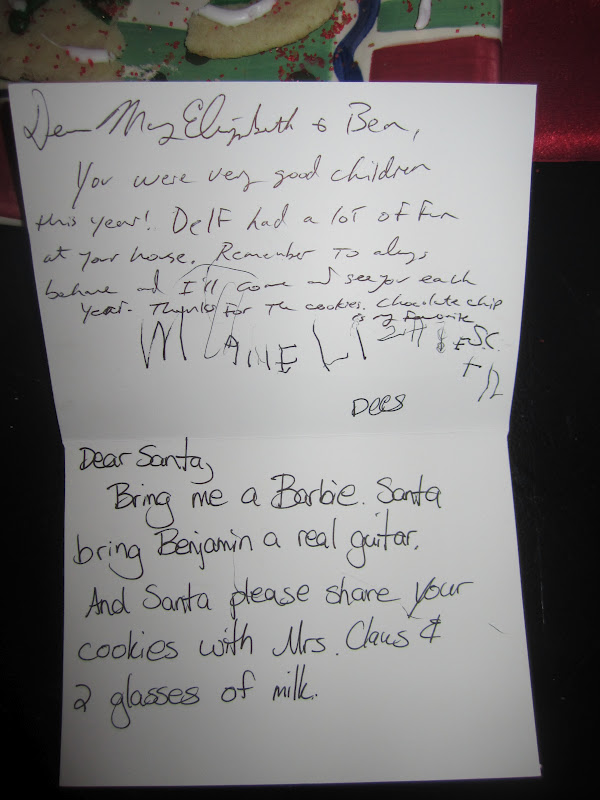 Dear Mary Elizabeth & Ben,
You were very good children
this year! Delf had a lot of fun
at your house. Remember to always
behave and I'll come and see you each
year. Thanks for the cookies. Chocolate chip
is my favorite
S.C.
Dees
Dear Santa,
Bring me a Barbie. Santa
bring Benjamin a real guitar.
And Santa please share your
cookies with Mrs. Claus &
2 glasses of milk.